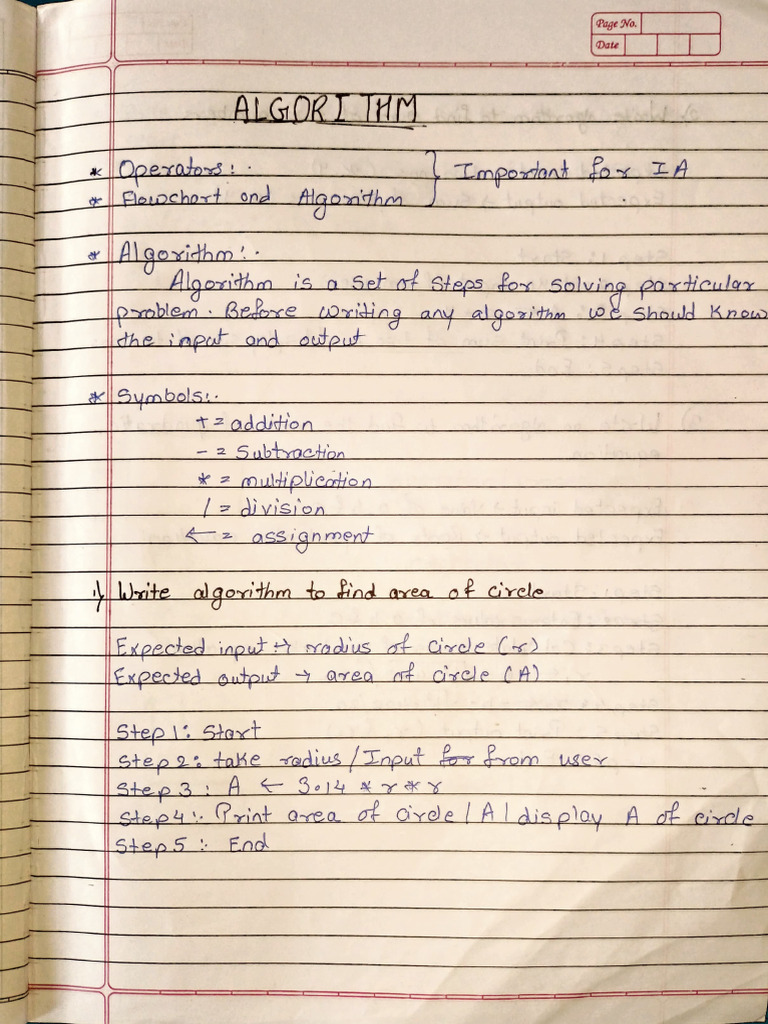 Page No.
Date
ALGORITHM
* Operators:. } Important for IA
* Flowchart and Algorithm
* Algorithm:.
Algorithm is a set of steps for solving particular
problem. Before writing any algorithm we should know
the input and output
* Symbols:.
+ = addition
- = Subtraction
* = multiplication
/ = division
← = assignment
1) Write algorithm to find area of circle
Expected input :→ radius of circle (r)
Expected output → area of circle (A)
Step 1: Start
Step 2: take radius / Input for from user
Step 3 : A ← 3.14 * r * r
Step 4 :. Print area of circle / A / display A of circle
Step 5 :. End